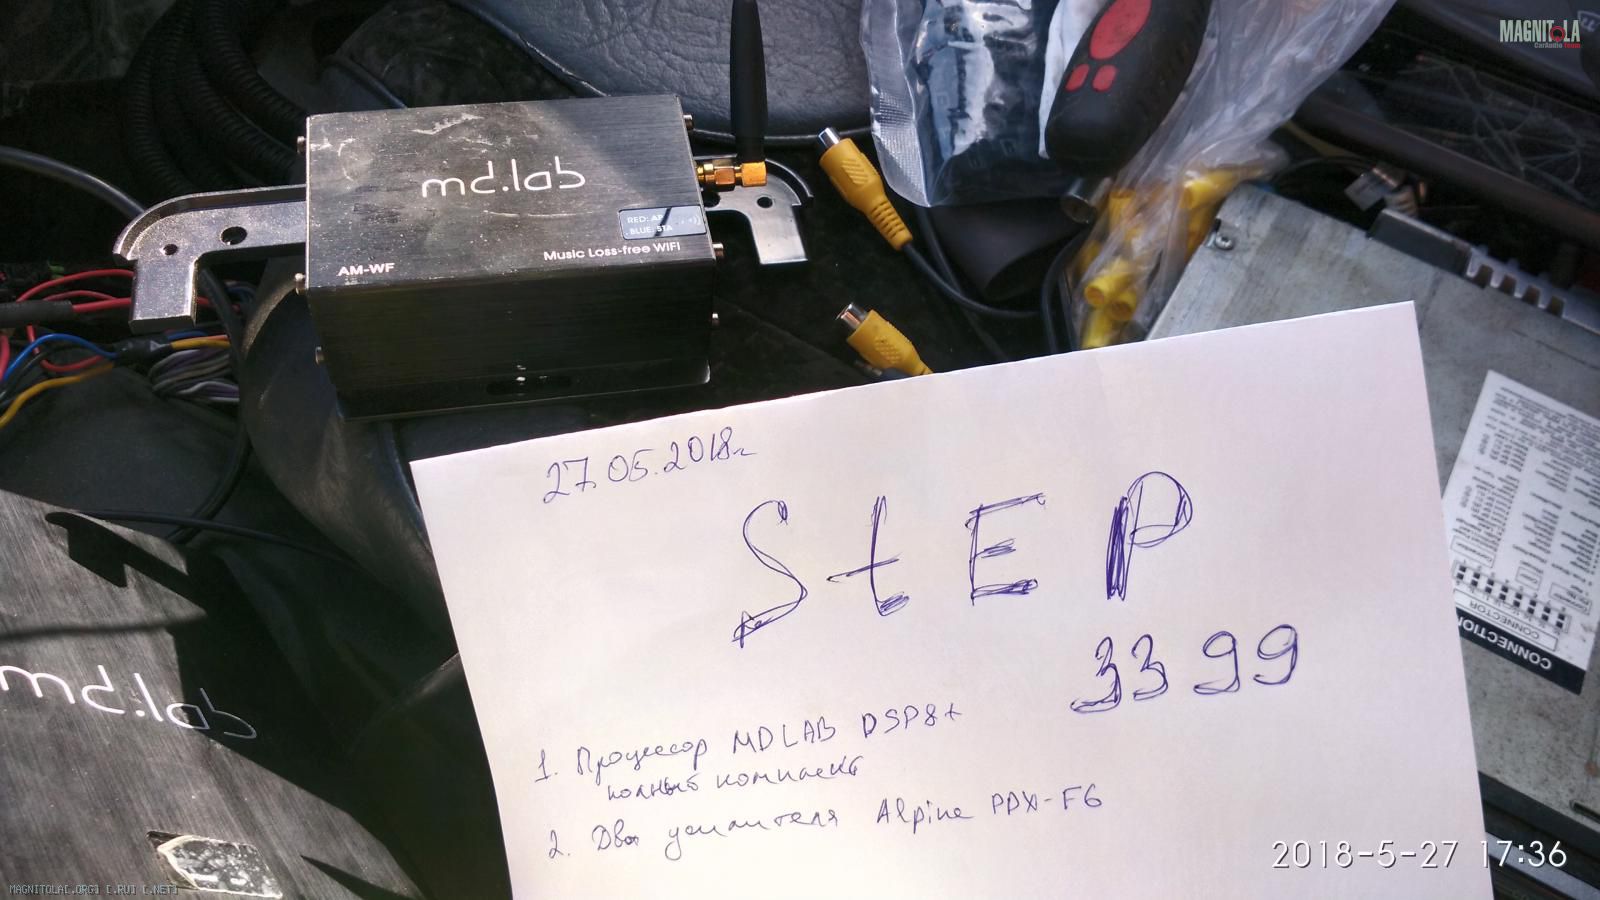 MAGNITOLA
CarAudio Team
md.lab
RED: AP
BLUE: STA
Music Loss-free WIFI
AM-WF
27.05.2018г
StEP
3399
1. Процессор MDLAB DSP8+
полный комплект
2. Два усилителя Alpine PDX-F6
md.lab
CONNECTOR
CONNECTION
2018-5-27 17:36
MAGNITOLA[.ORG] [.RU] [.NET]